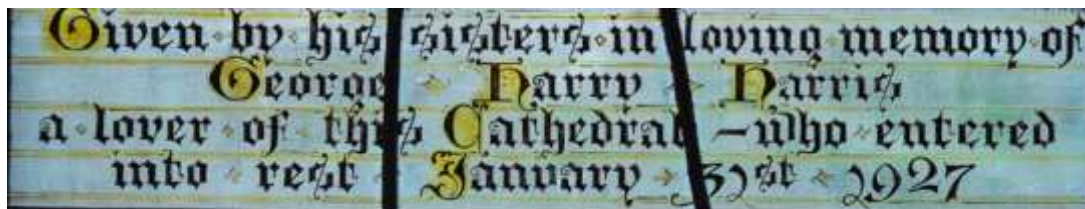 Given by his sisters in loving memory of
George Harry Harris
a lover of this Cathedral - who entered
into rest January 31st 1927